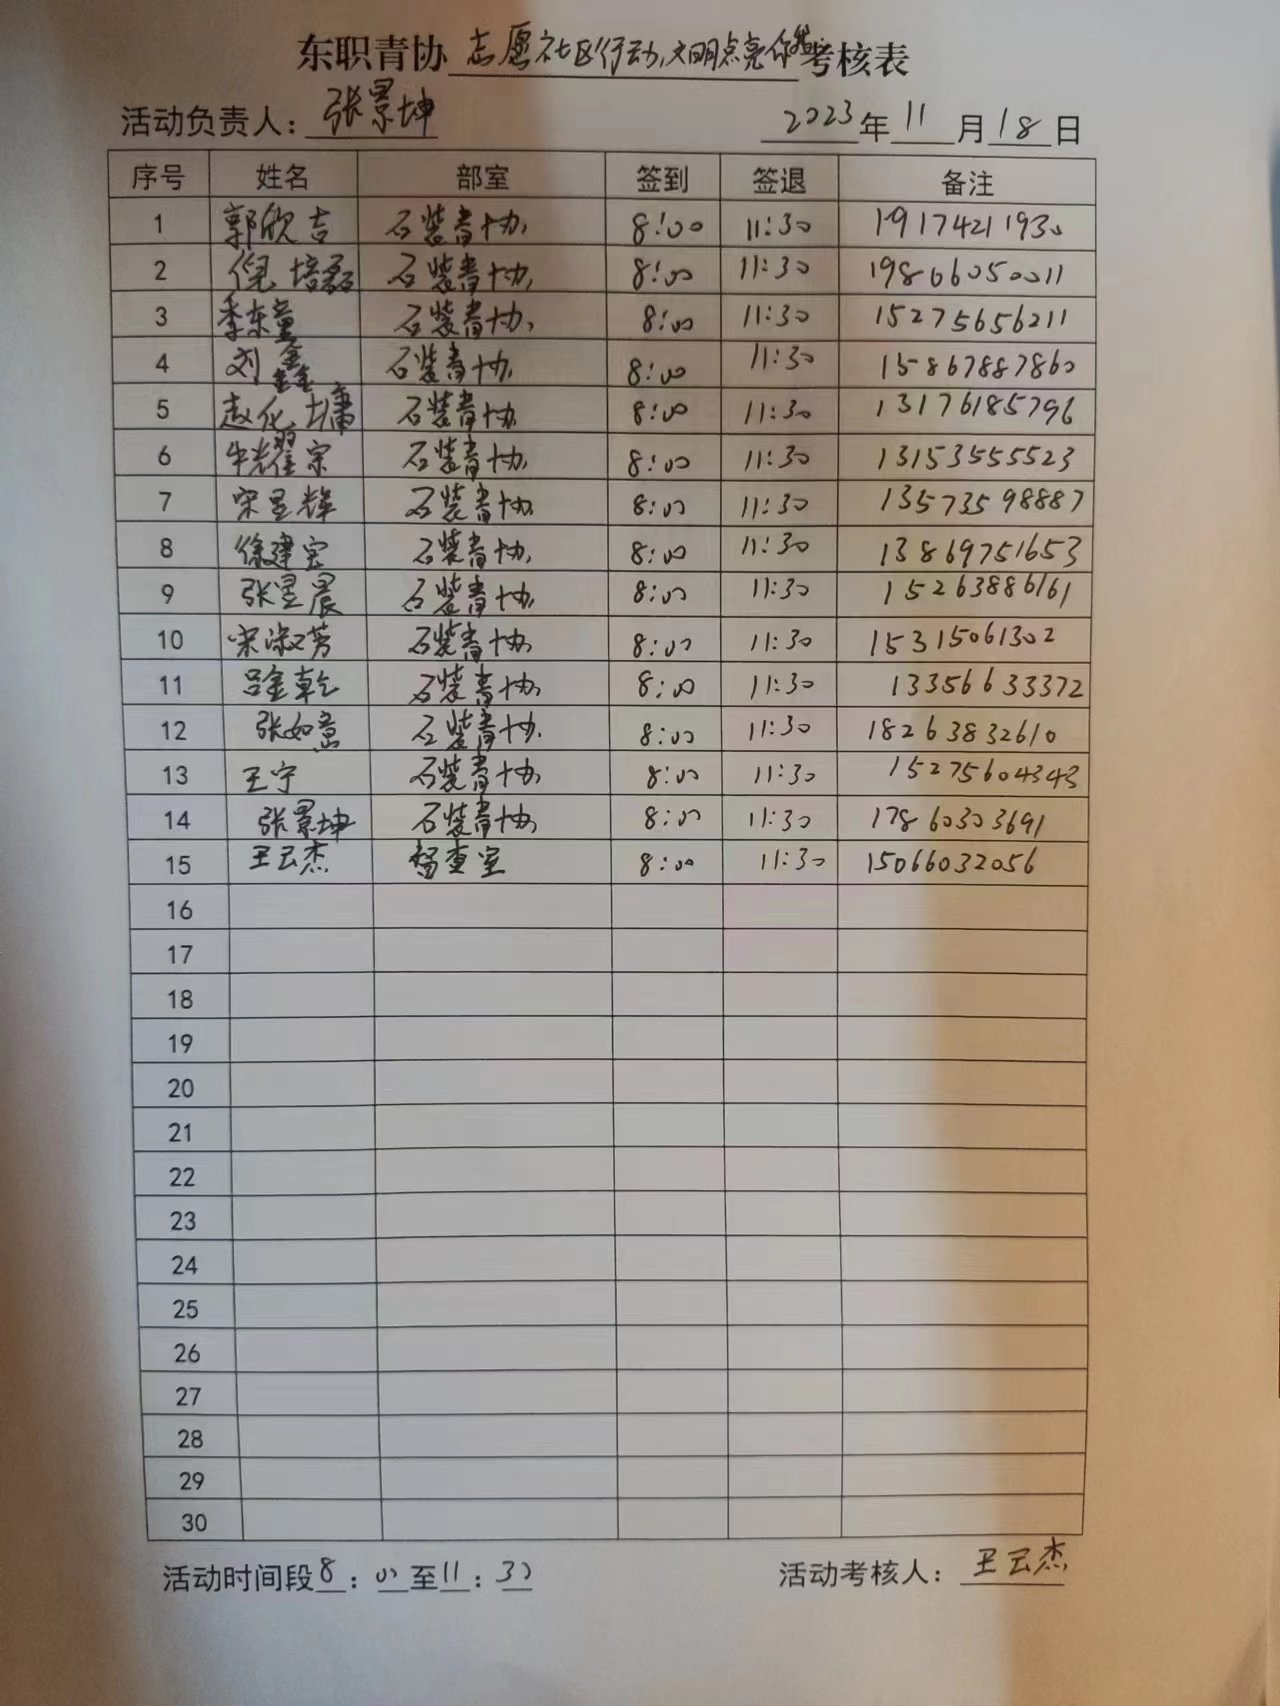 东职青协 志愿社区行动,文明点亮你我 考核表
活动负责人: 张景坤 2023年11月18日
序号 姓名 部室 签到 签退 备注
1 郭欣吉 石装青协 8:00 11:30 19174211930
2 倪培磊 石装青协 8:00 11:30 19866050011
3 季东童 石装青协 8:00 11:30 15275656211
4 刘鑫 石装青协 8:00 11:30 15867887860
5 赵化墉 石装青协 8:00 11:30 13176185796
6 牛耀宗 石装青协 8:00 11:30 13153555523
7 宋昱辉 石装青协 8:00 11:30 13573598887
8 徐建宝 石装青协 8:00 11:30 13869751653
9 张昱晨 石装青协 8:00 11:30 15263886161
10 宋淑芳 石装青协 8:00 11:30 15315061302
11 吕金乾 石装青协 8:00 11:30 13356633372
12 张如意 石装青协 8:00 11:30 18263832610
13 王宁 石装青协 8:00 11:30 15275604343
14 张景坤 石装青协 8:00 11:30 17860303691
15 王云杰 督查室 8:00 11:30 15066032056
16
17
18
19
20
21
22
23
24
25
26
27
28
29
30
活动时间段8:00至11:30 活动考核人: 王云杰